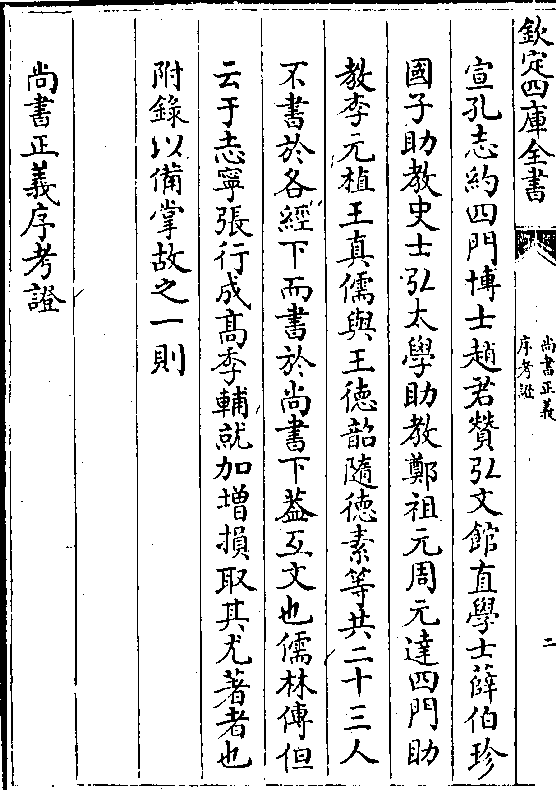 欽定四庫全書
尚書正義
序考證
二
宣孔志約四門博士趙君贊弘文館直學士薛伯珍
國子助教史士弘太學助教鄭祖元周元達四門助
教李元植王真儒與王德韶隨德素等共二十三人
不書於各經下而書於尚書下蓋互文也儒林傳但
云于志寧張行成高季輔就加增損取其尤著者也
附錄以備掌故之一則
尚書正義序考證